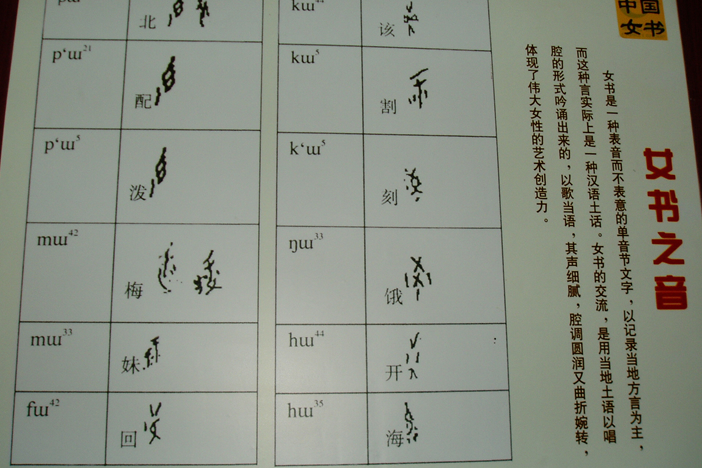 中国
女书
女书之音
女书是一种表音而不表意的单音节文字，以记录当地方言为主，
而这种言实际上是一种汉语土话。女书的交流，是用当地土语以唱
腔的形式吟诵出来的，以歌当语，其声细腻，腔调圆润又曲折婉转，
体现了伟大女性的艺术创造力。
北
pʻɯ21 配
pʻɯ5 泼
mɯ42 梅
mɯ33 妹
fɯ42 回
kɯ44 该
kɯ5 割
kʻɯ5 刻
ŋɯ33 饿
hɯ44 开
hɯ35 海